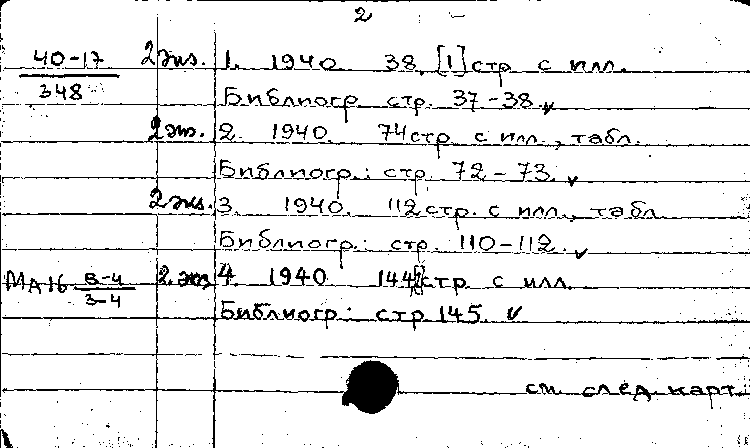 2
40-17 2 экз. 1. 1940. 38, [1] стр. с илл.
348 Библиогр. стр. 37-38.
2 экз. 2. 1940. 74 стр. с илл., табл.
Библиогр.: стр. 72-73.
2 экз. 3. 1940. 112 стр. с илл., табл.
Библиогр.: стр. 110-112.
МА16 В-4 2. экз 4. 1940 144 стр с илл.
3-4 Библиогр: стр 145.
см след. карт.